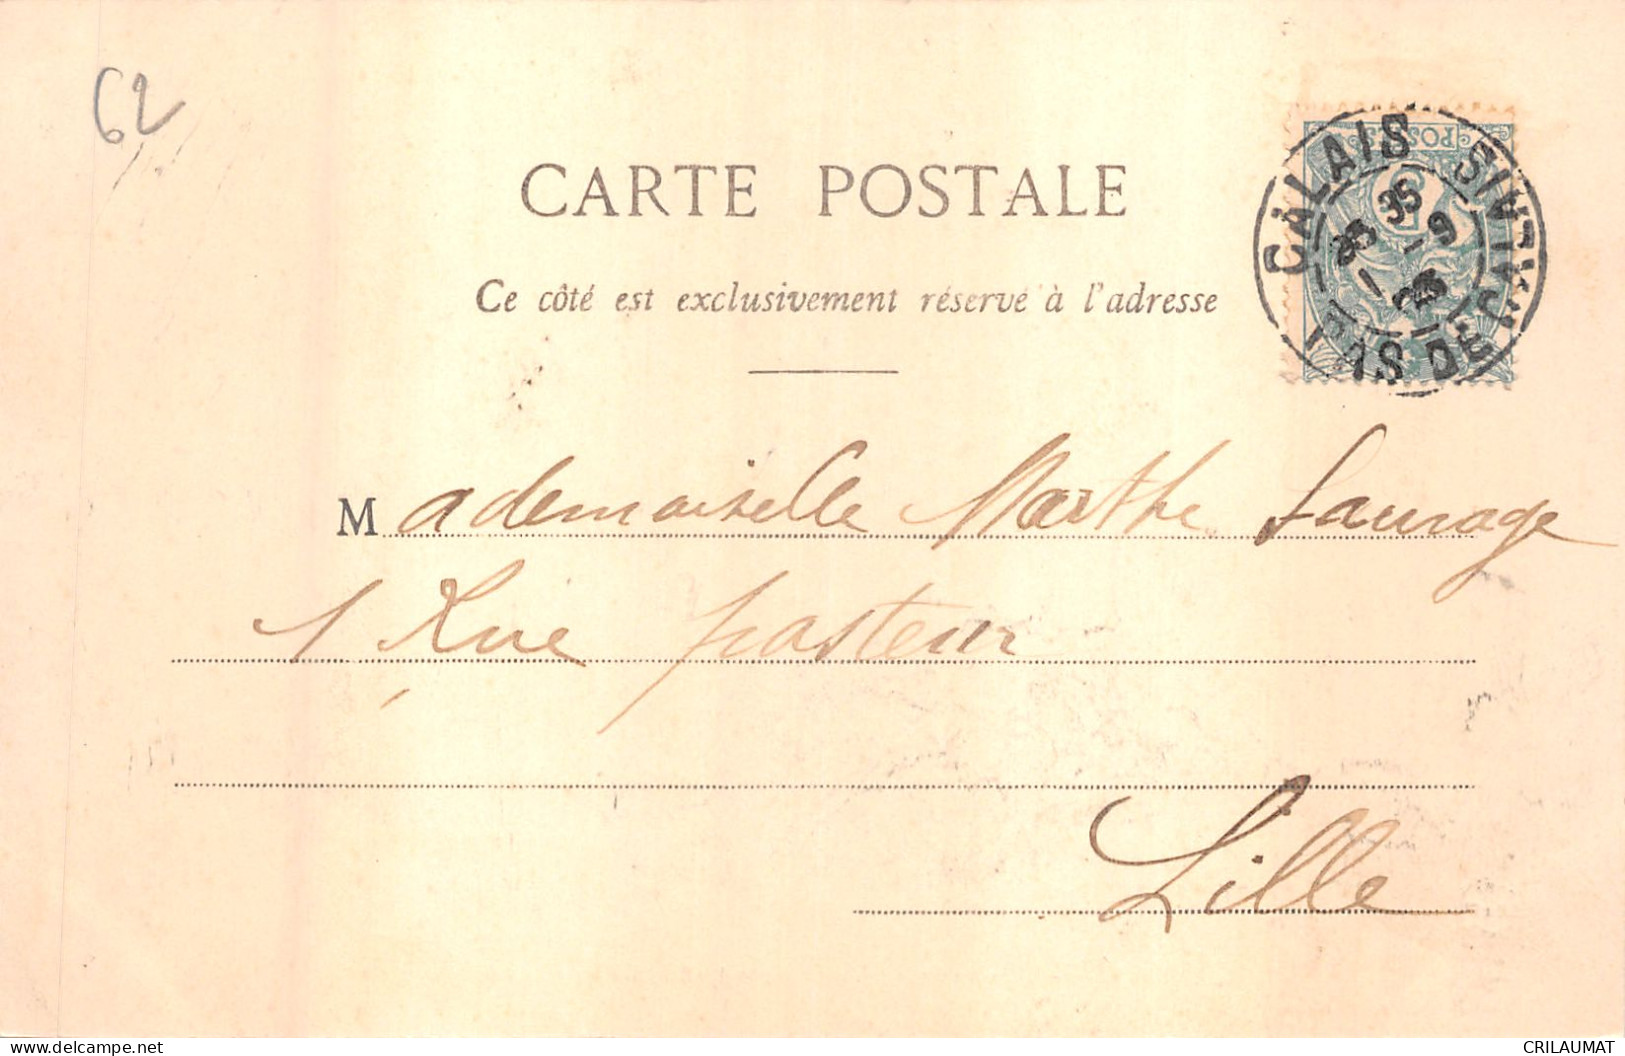 62
CARTE POSTALE
POSTES
5
CALAIS
PAS DE CALAIS
35
1-9
03
Ce côté est exclusivement réservé à l'adresse
Mademoiselle Marthe Sauvage
1 Rue Pasteur
Lille
CRILAUMAT